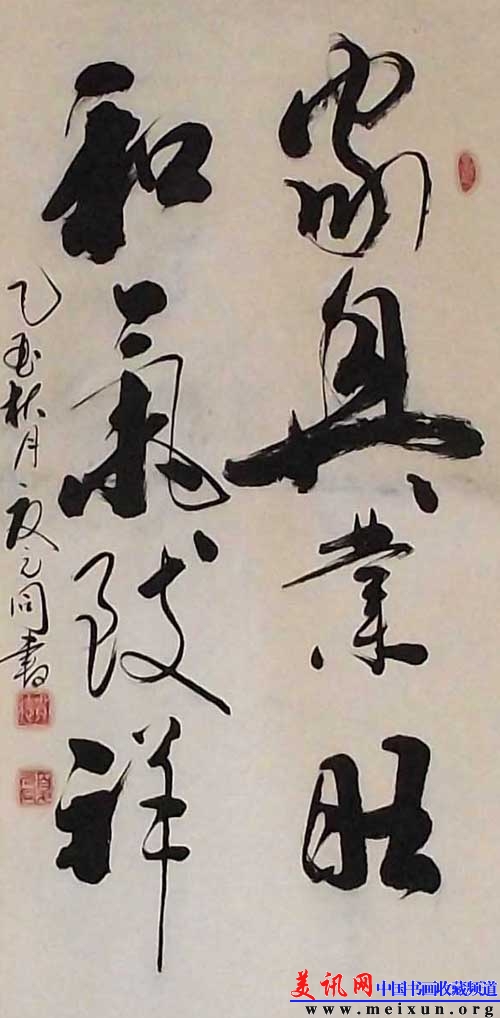 家興業旺
和氣致祥
乙酉秋月之同書
美讯网中国书画收藏频道
www.meixun.org